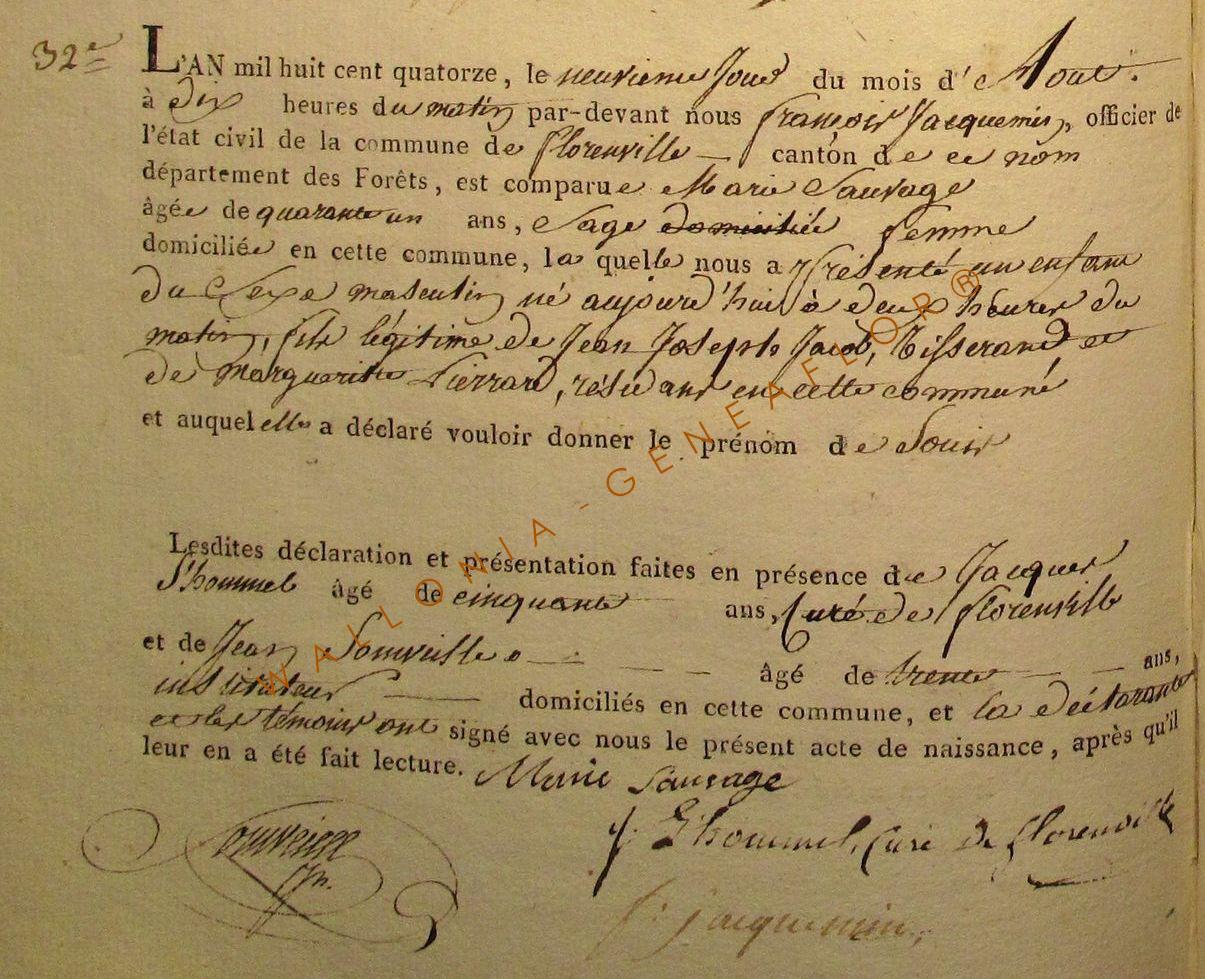 32e
L'AN mil huit cent quatorze, le neuvieme Jour du mois d'Aout.
à dix heures du matin par-devant nous françois Jacquemin, officier de
l'état civil de la commune de florenville — canton de ce nom
département des Forêts, est comparue Marie Sauvage
âgée de quarante un ans, Sage domiciliée femme
domiciliée en cette commune, la quelle nous a présenté un enfant
du Sexe masculin né aujourd'hui à deux heures du
matin, fils légitime de Jean Joseph Jacob, tisserand et
de Marguerite Pierrard, résidant en cette commune
et auquel elle a déclaré vouloir donner le prénom de Louis
Lesdites déclaration et présentation faites en présence de Jacques
L'hommel âgé de cinquante ans, Curé de florenville
et de Jean — — — âgé de trente — — ans,
instituteur — domiciliés en cette commune, et la déclarante
et les témoins ont signé avec nous le présent acte de naissance, après qu'il
leur en a été fait lecture. Marie Sauvage
L'hommel, Curé de florenville
f: jacquemin
WALLONIA-GENEAFLOR®